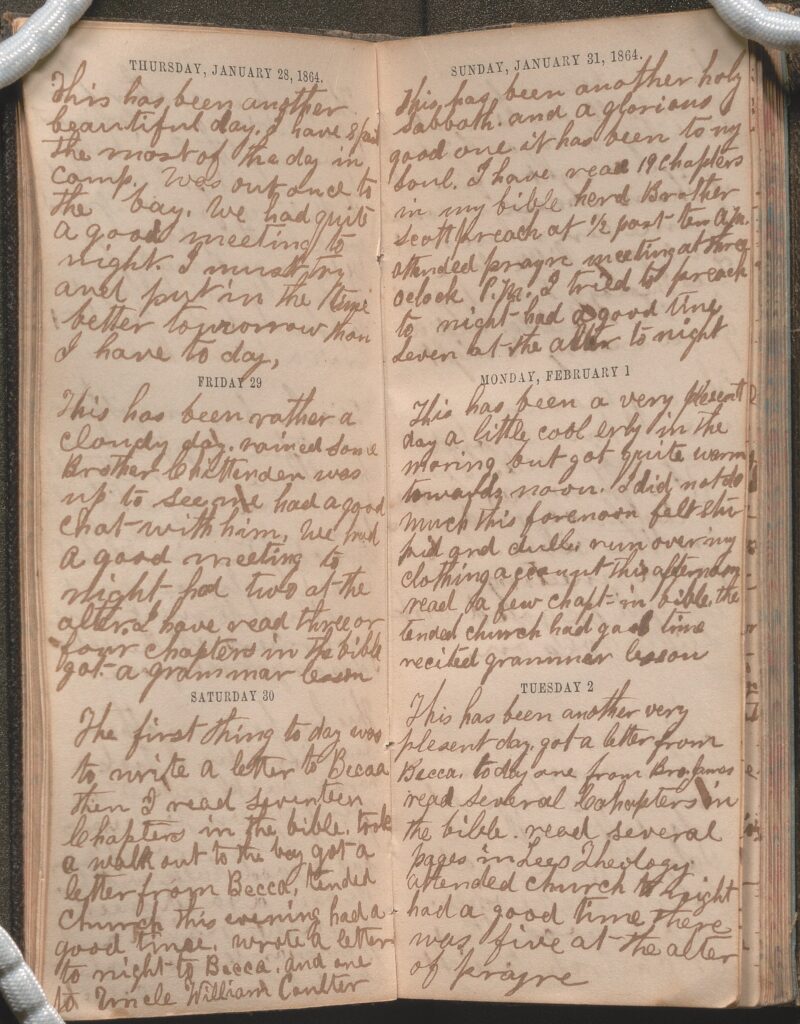 THURSDAY, JANUARY 28, 1864.
This has been another
beautiful day. I have
the most of the day in
camp. Was out once to
the bay. We had quite
a good meeting to
night. I must try
and put in the time
better tomorrow than
I have to day,
FRIDAY 29
This has been rather a
cloudy day. rained some
Brother Chittenden was
up to see me had a good
chat with him, We had
a good meeting to
night had two at the
alter. I have read three or
four chapters in the bible
got a grammar lesson
SATURDAY 30
The first thing to day was
to write a letter to Becca
then I read seventeen
Chapters in the bible, took
a walk out to the bay got a
letter from Becca, tended
Church this evening had a
good time, wrote a letter
to night to Becca, and one
to Uncle William Coulter
SUNDAY, JANUARY 31, 1864.
This has been another holy
Sabbath. and a glorious
good one it has been to my
Soul. I have read 19 Chapters
in my bible herd Brother
Scott preach at ½ past ten A.M.
attended prayre meeting at three
oclock P.M. I tried to preach
to night had a good time
Seven at the alter to night
MONDAY, FEBRUARY 1
This has been a very plesent
day a little cool erly in the
moring but got quite warm
towards noon. I did not do
much this forenoon felt stu-
pid and dull. run over my
clothing account this afternoon
read a few chapt- in bible, the
tended church had good time
recited grammar lesson
TUESDAY 2
This has been another very
plesent day. got a letter from
Becca. today one from Bro James
read several Chapters in
the bible. read several
pages in Lees Theology
attended church to night
had a good time, There
was five at the alter
of prayre